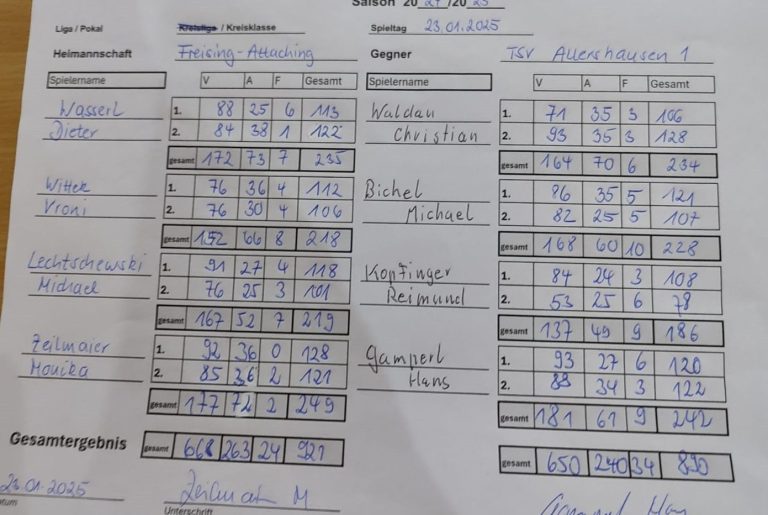 Saison 2024/2025
Liga / Pokal Kreisliga / Kreisklasse Spieltag 23.01.2025
Heimmannschaft Freising-Attaching Gegner TSV Allershausen 1
Spielername V A F Gesamt Spielername V A F Gesamt
Wasserl 1. 88 25 6 113 Waldau 1. 71 35 3 106
Dieter 2. 84 38 1 122 Christian 2. 93 35 3 128
gesamt 172 73 7 235 gesamt 164 70 6 234
Wittek 1. 76 36 4 112 Bichel 1. 86 35 5 121
Vroni 2. 76 30 4 106 Michael 2. 82 25 5 107
gesamt 152 66 8 218 gesamt 168 60 10 228
Lechtschewski 1. 91 27 4 118 Kopfinger 1. 84 24 3 108
Michael 2. 76 25 3 101 Reimund 2. 53 25 6 78
gesamt 167 52 7 219 gesamt 137 49 9 186
Zeilmaier 1. 92 36 0 128 Gamperl 1. 93 27 6 120
Monika 2. 85 36 2 121 Hans 2. 88 34 3 122
gesamt 177 72 2 249 gesamt 181 61 9 242
Gesamtergebnis gesamt 668 263 24 921 gesamt 650 240 34 890
23.01.2025 Zeilmaier M
Unterschrift